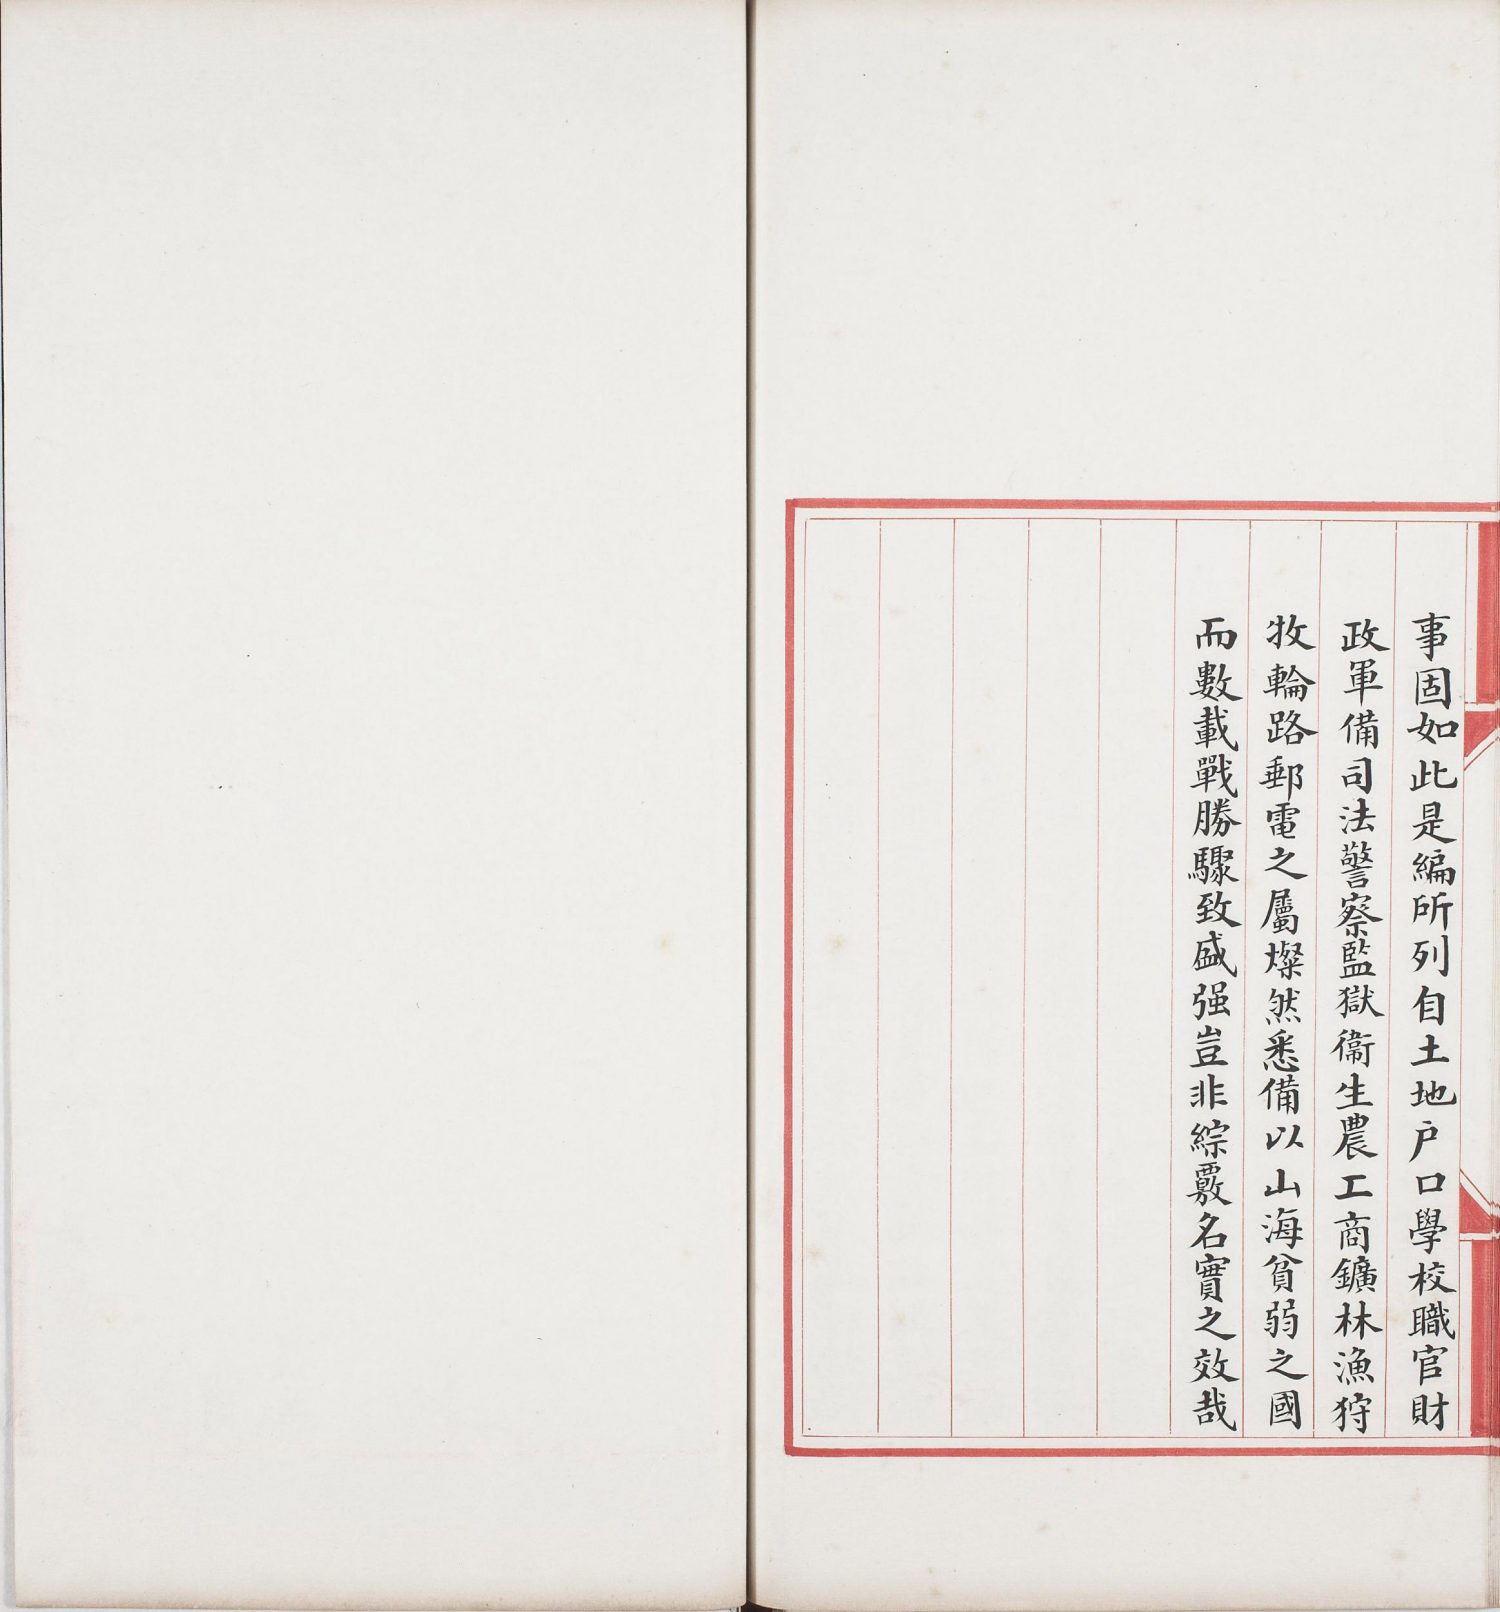 事固如此是編所列自土地户口學校職官財
政軍備司法警察監獄衞生農工商鑛林漁狩
牧輪路郵電之屬燦然悉備以山海貧弱之國
而數載戰勝驟致盛强豈非綜覈名實之效哉